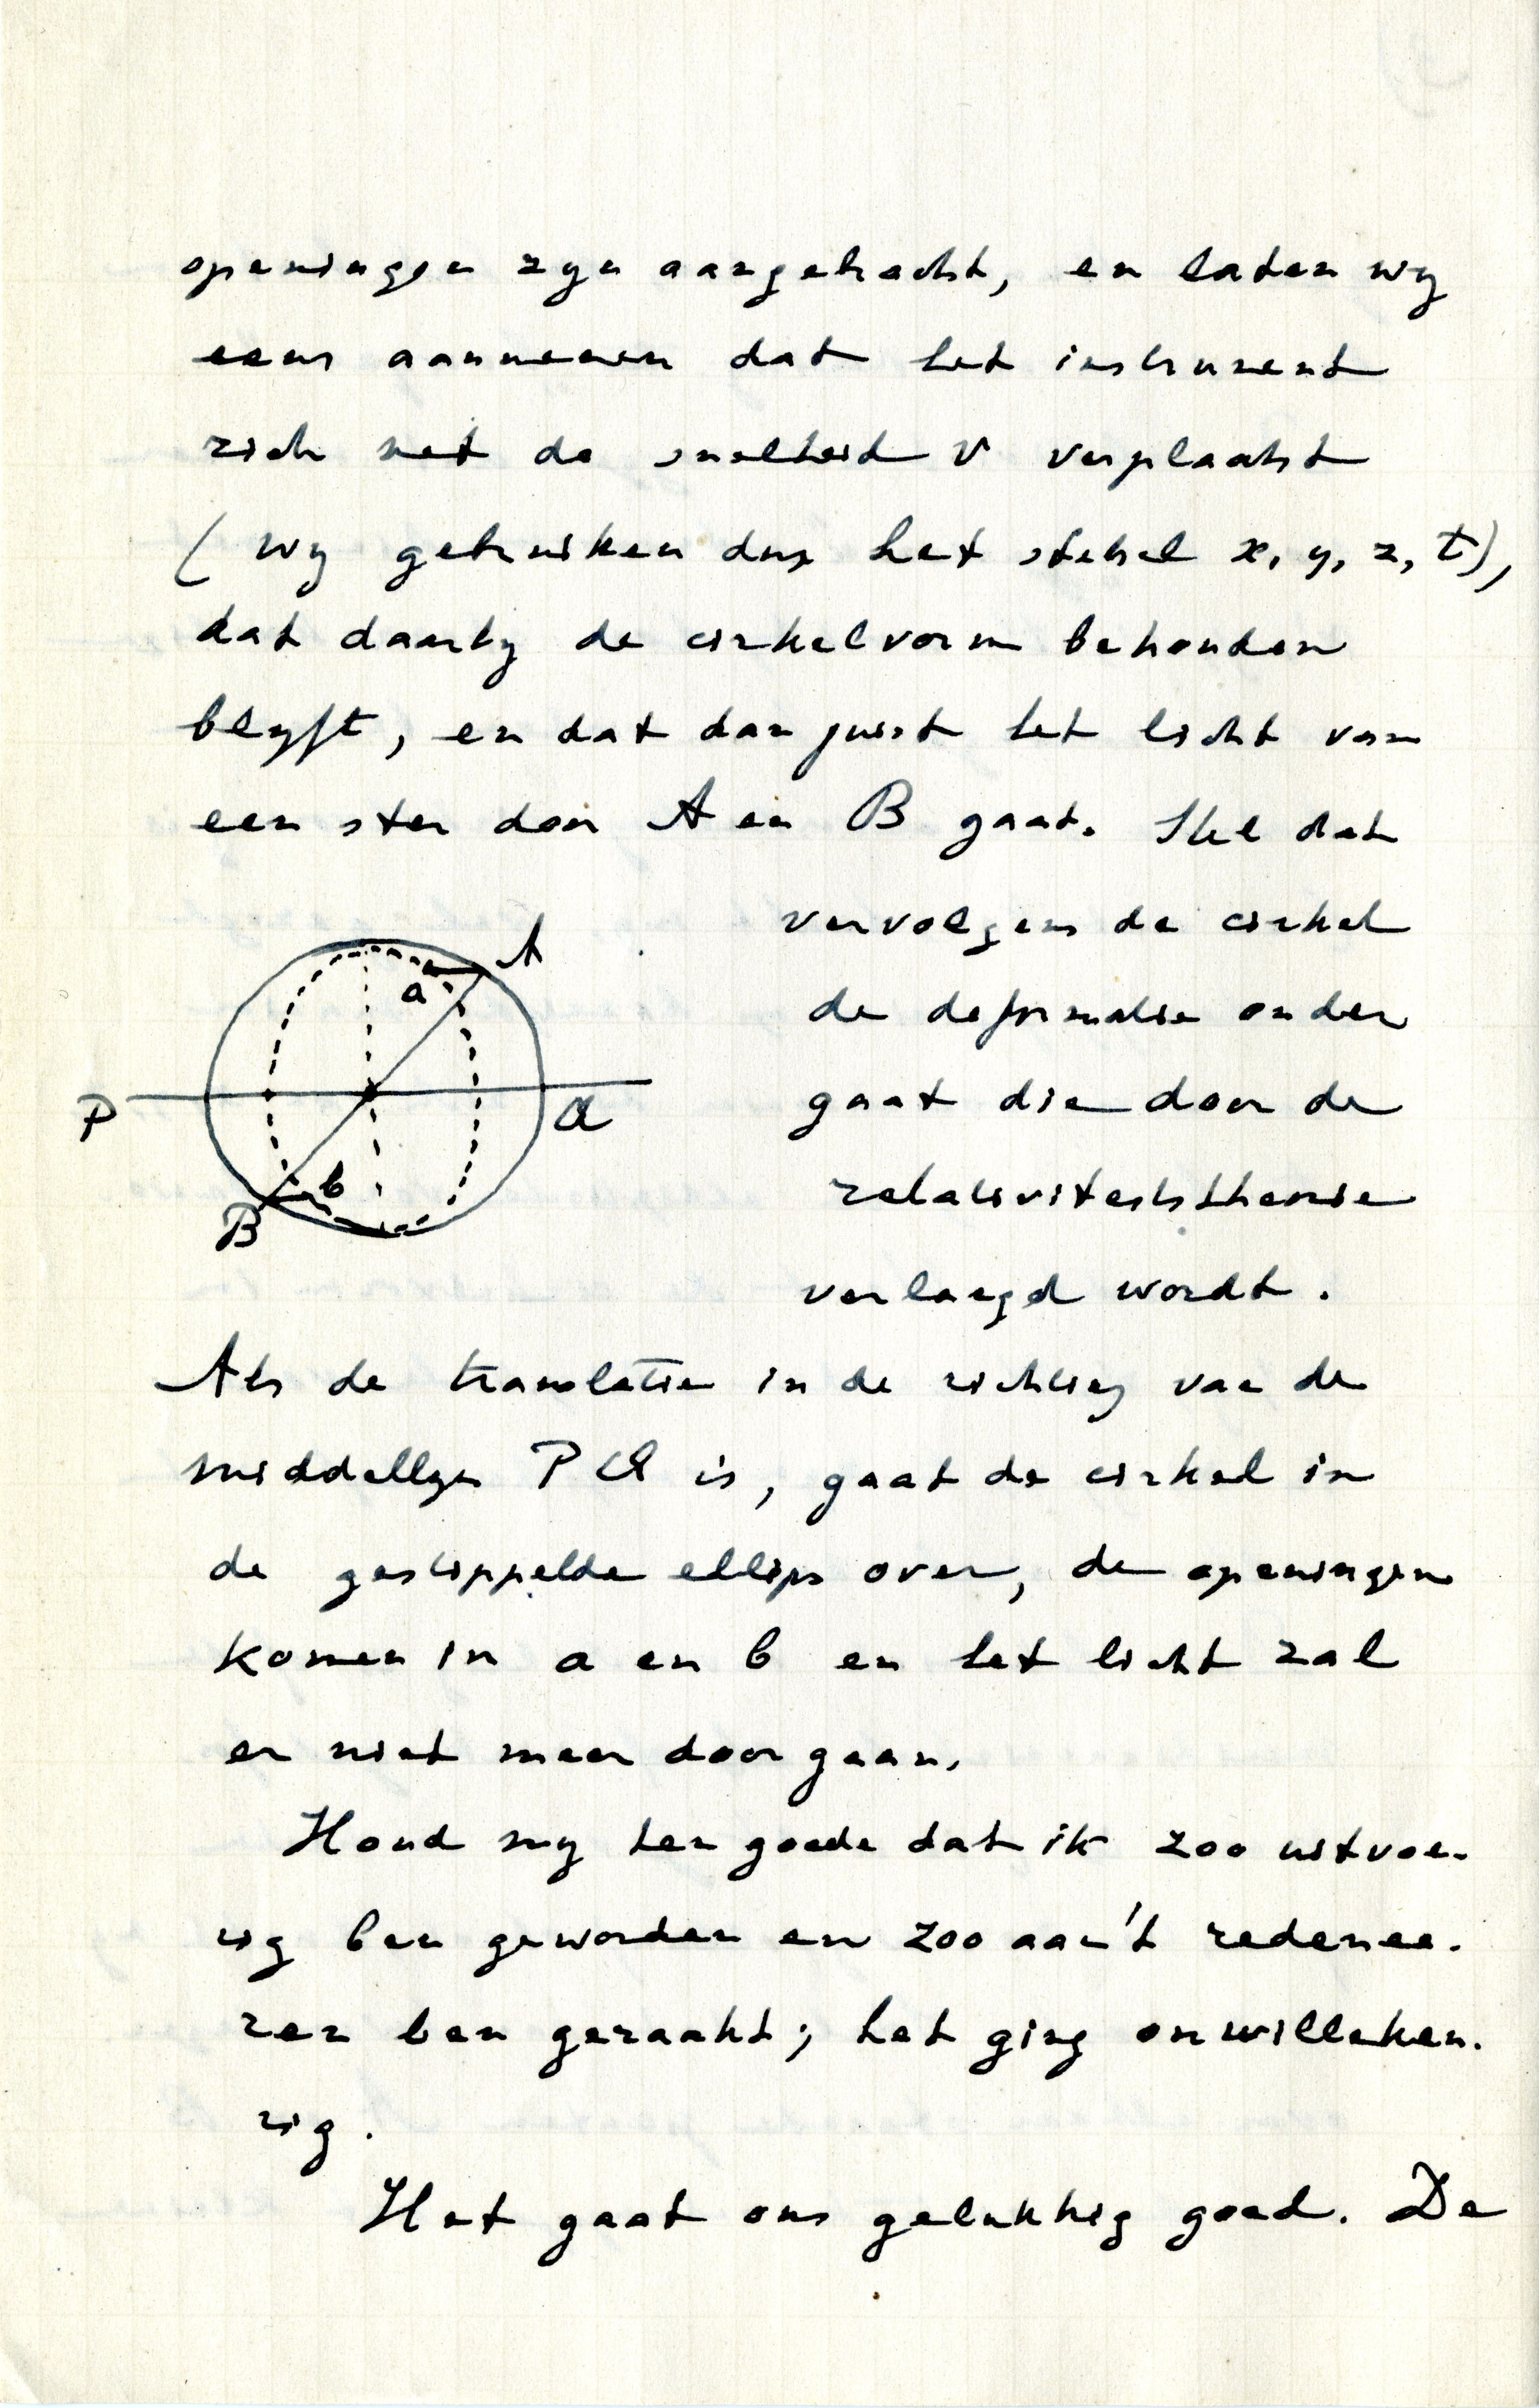 openingen zyn aangebracht, en laten wy
eens aannemen dat het instrument
zich met de snelheid v verplaatst
(wy gebruiken dus het stelsel x, y, z, t),
dat daarby de cirkelvorm behouden
blyft, en dat dan juist het licht van
een ster door A en B gaat. Stel dat
vervolgens de cirkel
de deformatie onder
gaat die door de
relativiteitstheorie
verlangd wordt.
A
a
P
Q
b
B
Als de translatie in de richting van de
middellyn PQ is, gaat de cirkel in
de gestippelde ellips over, de openingen
komen in a en b en het licht zal
er niet meer door gaan.
Houd my ten goede dat ik zoo uitvoe-
rig ben geworden en zoo aan 't redenee-
ren ben geraakt; het ging onwillekeu-
rig.
Het gaat ons gelukkig goed. De